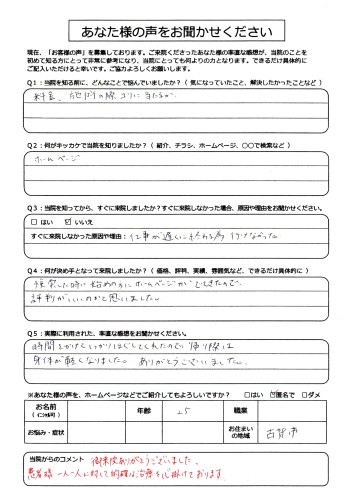 あなた様の声をお聞かせください
現在、「お客様の声」を募集しております。ご来院くださったあなた様の率直な感想が、当院のことを
初めて知る方にとって非常に参考になり、当院にとっても何よりの力となります。できるだけ具体的に
ご記入いただけると幸いです。ご協力よろしくお願いします。
Q1：当院を知る前に、どんなことで悩んでいましたか？（ 気になっていたこと、解決したかったことなど ）
料金、
Q2：何がキッカケで当院を知りましたか？（ 紹介、チラシ、ホームページ、〇〇で検索など ）
ホームページ
Q3：当院を知ってから、すぐに来院しましたか？すぐに来院しなかった場合、原因や理由をお聞かせください。
□ はい ☑ いいえ
すぐに来院しなかった原因や理由：仕事が遅くに終わる為 行けなかった
Q4：何が決め手となって来院しましたか？（ 価格、評判、実績、雰囲気など、できるだけ具体的に ）
検索した時に始めの方にホームページがでてきたので、
評判がいいのかと思いました。
Q5：実際に利用された、率直な感想をお聞かせください。
時間をかけてしっかりほぐしてくれたので帰り際は
身体が軽くなりました。ありがとうございました。
※あなた様の声を、ホームページなどでご紹介してもよろしいですか？ □はい ☑匿名で □ダメ
お名前 年齢 25 職業
お悩み・症状 お住まいの地域 古賀市
当院からのコメント 御来院ありがとうございました。
患者様一人一人に対して的確な治療を心掛けております。